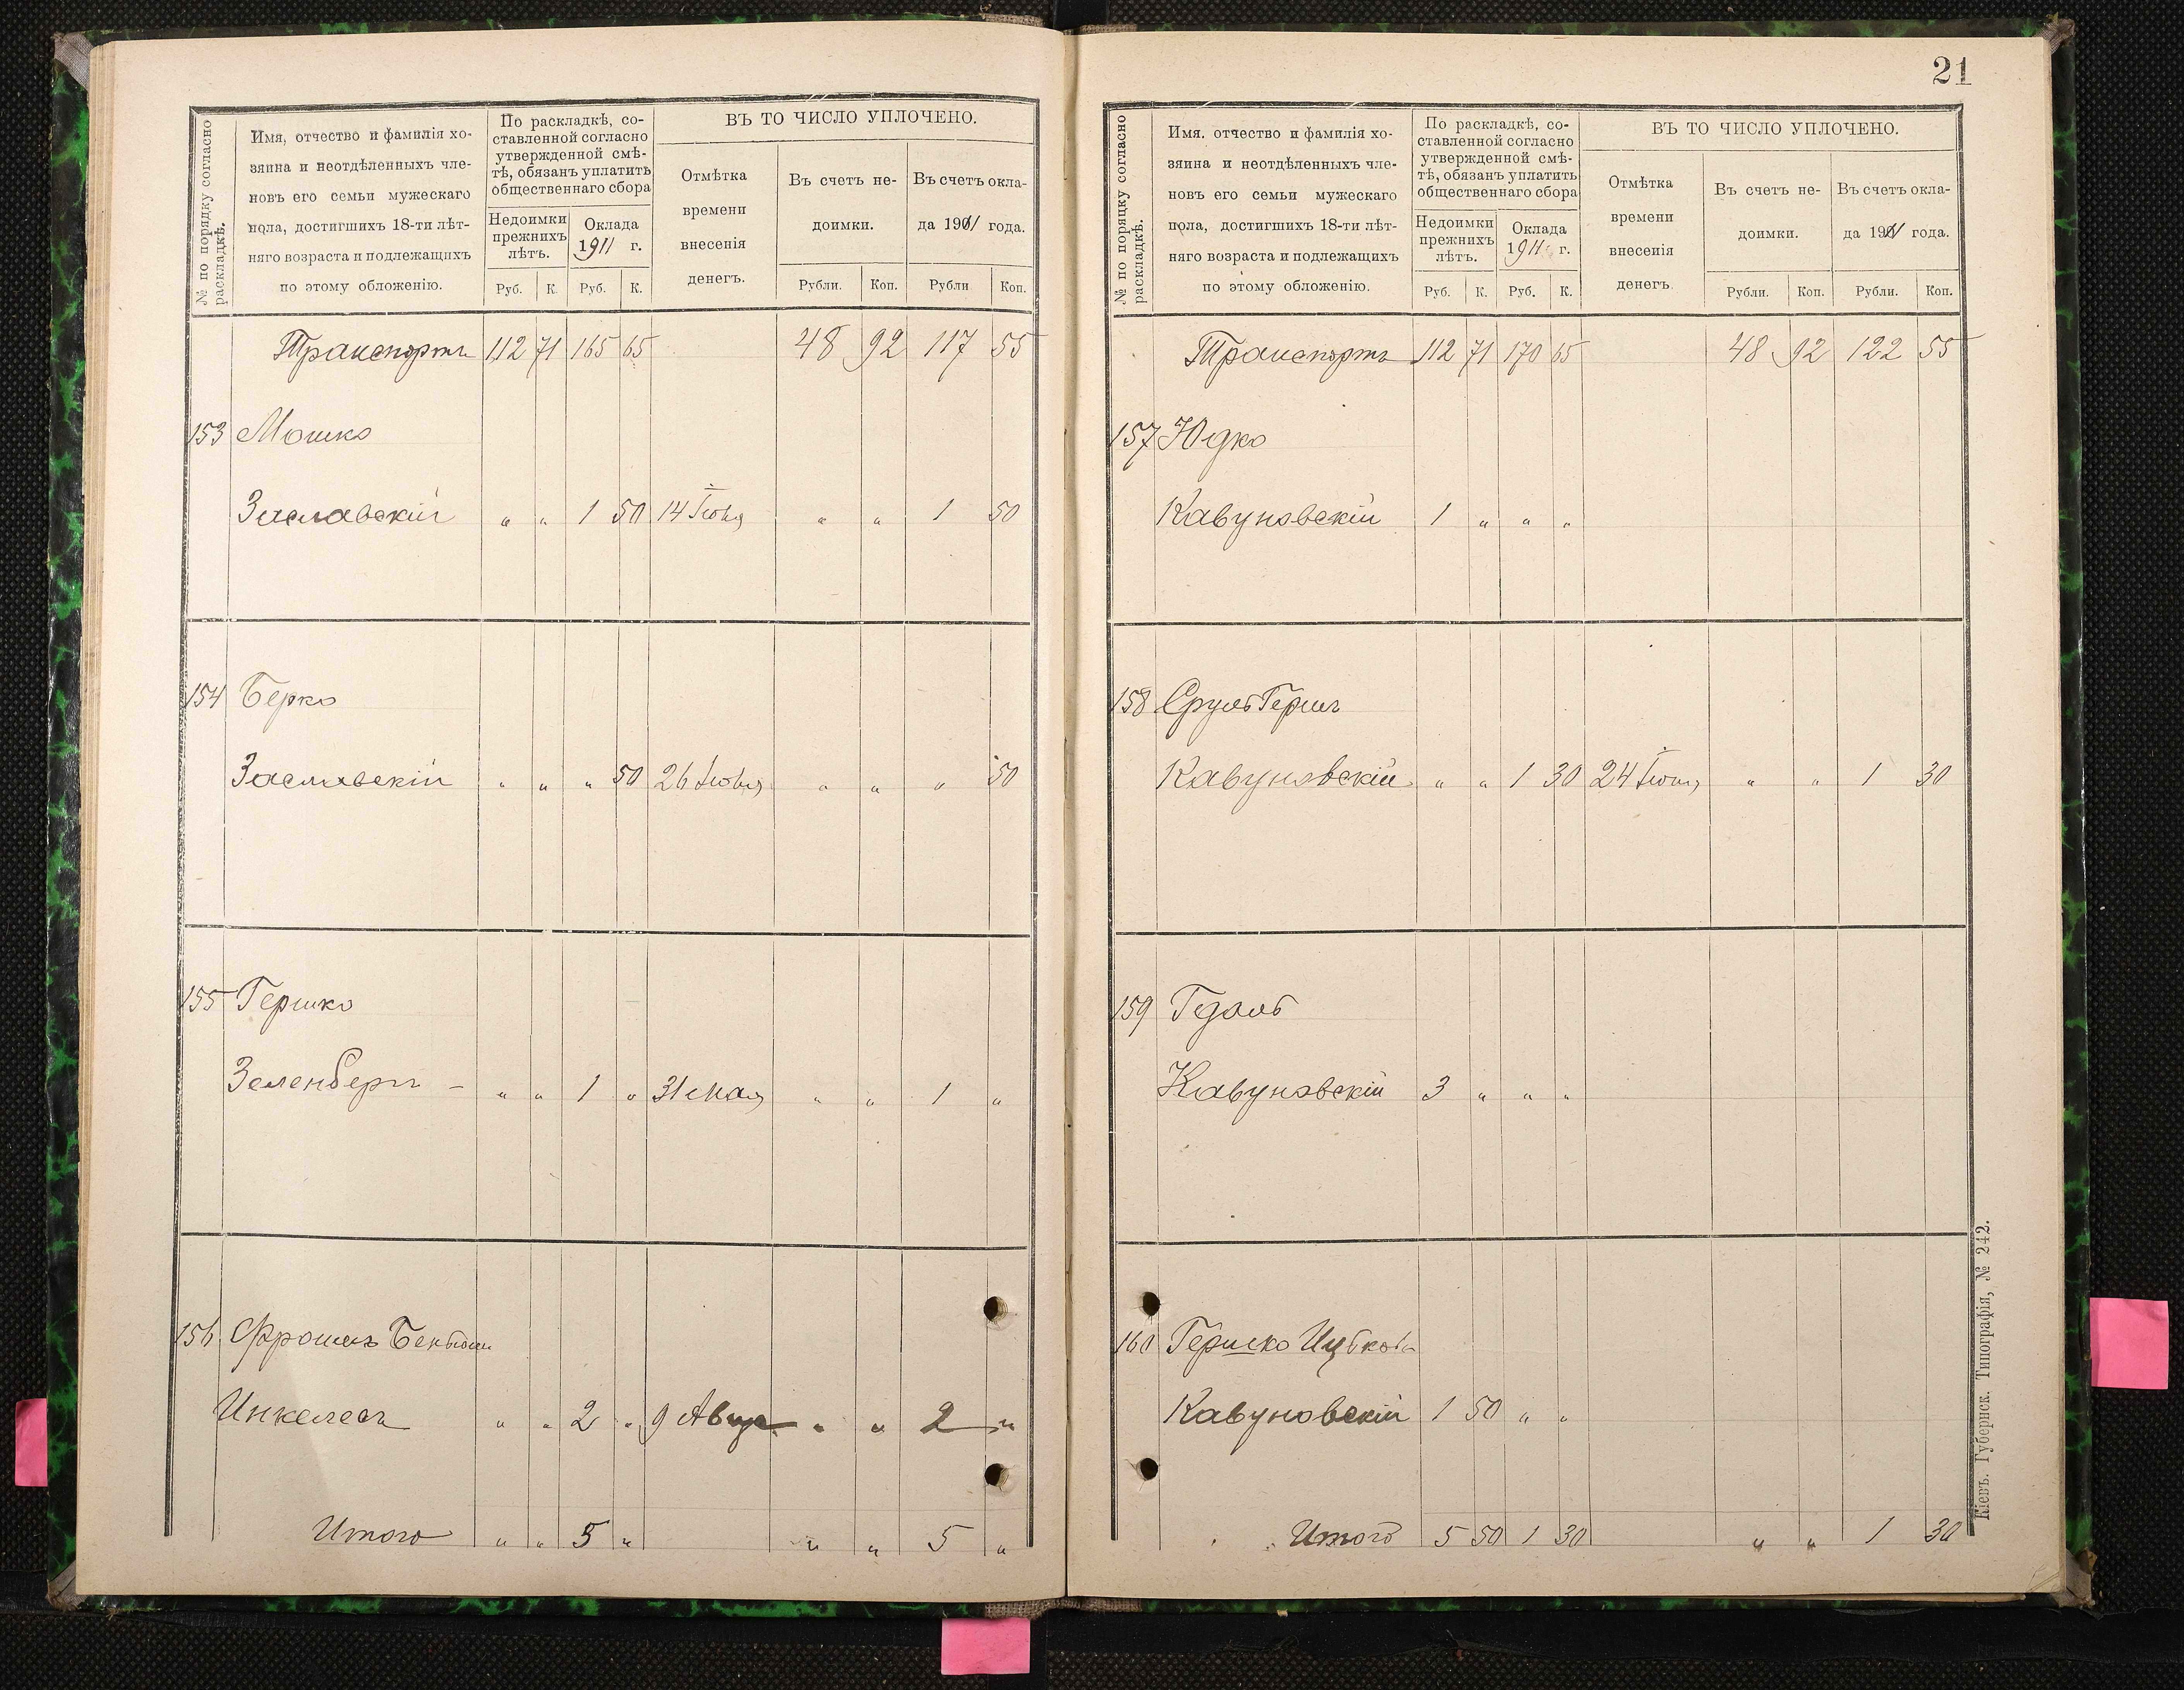 № по порядку согласно раскладкѣ.
Имя, отчество и фамилія хо-
зяина и неотдѣленныхъ чле-
новъ его семьи мужескаго
пола, достигшихъ 18-ти лѣт-
няго возраста и подлежащихъ
по этому обложенію.
По раскладкѣ, со-
ставленной согласно
утвержденной смѣ-
тѣ, обязанъ уплатить
общественнаго сбора
Недоимки прежнихъ лѣтъ.
Оклада 1911 г.
Руб. К. Руб. К.
ВЪ ТО ЧИСЛО УПЛОЧЕНО.
Отмѣтка
времени
внесенія
денегъ.
Въ счетъ не-
доимки.
Въ счетъ окла-
да 1911 года.
Рубли. Коп. Рубли Коп.
Транспортъ 112 71 165 65 48 92 117 55
153 Мошко
Заславскій " " 1 50 14 Іюня " " 1 50
154 Берко
Заславскій " " " 50 26 Іюня " " " 50
155 Гершко
Зеленбергъ - " " 1 " 31 Мая " " 1 "
156 Фроимъ
Инкелесъ " " 2 " 9 Авгус " " 2 "
Итого " " 5 " " " 5 "
21
№ по порядку согласно раскладкѣ.
Имя. отчество и фамилія хо-
зяина и неотдѣленныхъ чле-
новъ его семьи мужескаго
пола, достигшихъ 18-ти лѣт-
няго возраста и подлежащихъ
по этому обложенію.
По раскладкѣ, со-
ставленной согласно
утвержденной смѣ-
тѣ, обязанъ уплатить
общественнаго сбора
Недоимки прежнихъ лѣтъ.
Оклада 1911 г.
Руб. К. Руб. К.
ВЪ ТО ЧИСЛО УПЛОЧЕНО.
Отмѣтка
времени
внесенія
денегъ
Въ счетъ не-
доимки.
Въ счетъ окла-
да 1911 года.
Рубли. Коп. Рубли. Коп.
Транспортъ 112 71 170 65 48 92 122 55
157 Юдко
Кавуновскій 1 " " "
158 Сруль Гершъ
Кавуновскій " " 1 30 24 " " 1 30
159 Гдаль
Кавуновскій 3 " " "
160 Гершко Ицковъ
Кавуновскій 1 50 " "
Итого 5 50 1 30 " " 1 30
Кіевъ. Губернск. Типографія, № 242.